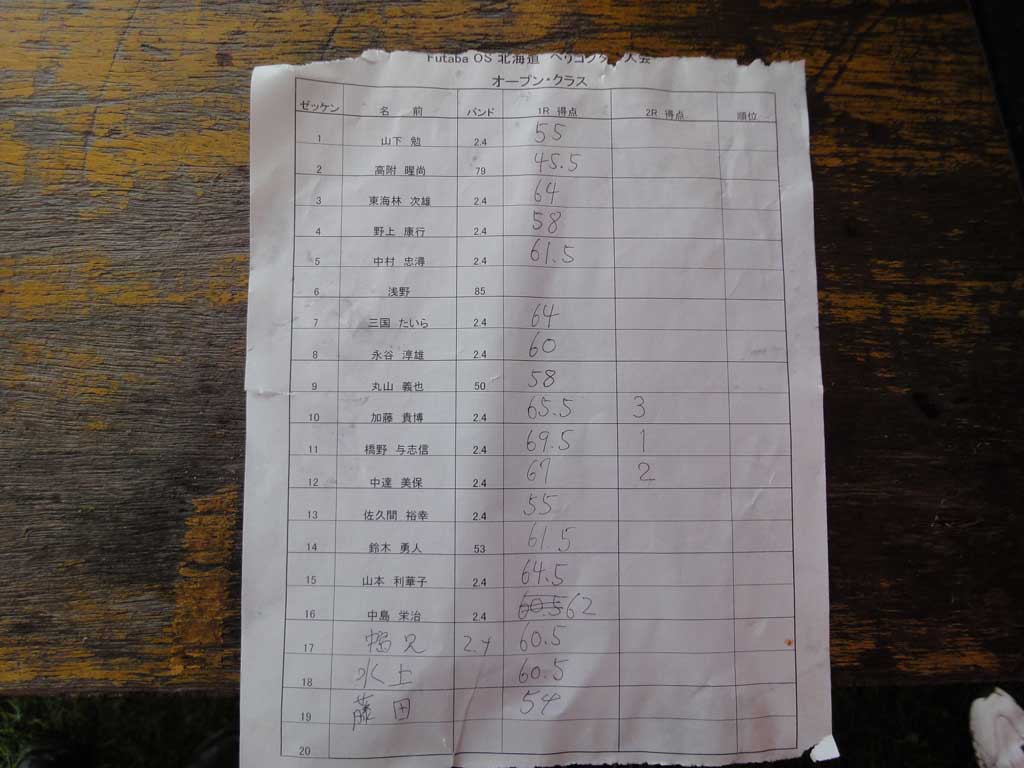 Futaba OS 北海道 ヘリコプター大会
オープン・クラス
ゼッケン 名 前 バンド 1R 得点 2R 得点 順位
1 山下 勉 2.4 55
2 高附 曜尚 79 45.5
3 東海林 次雄 2.4 64
4 野上 康行 2.4 58
5 中村 忠 2.4 61.5
6 浅野 85
7 三国 たいら 2.4 64
8 永谷 淳雄 2.4 60
9 丸山 義也 50 58
10 加藤 貴博 2.4 65.5 3
11 橋野 与志信 2.4 69.5 1
12 中達 美保 2.4 67 2
13 佐久間 裕幸 2.4 55
14 鈴木 勇人 53 61.5
15 山本 利華子 2.4 64.5
16 中島 栄治 2.4 60.5 62
17 2.4 60.5
18 水上 60.5
19 藤田 54
20